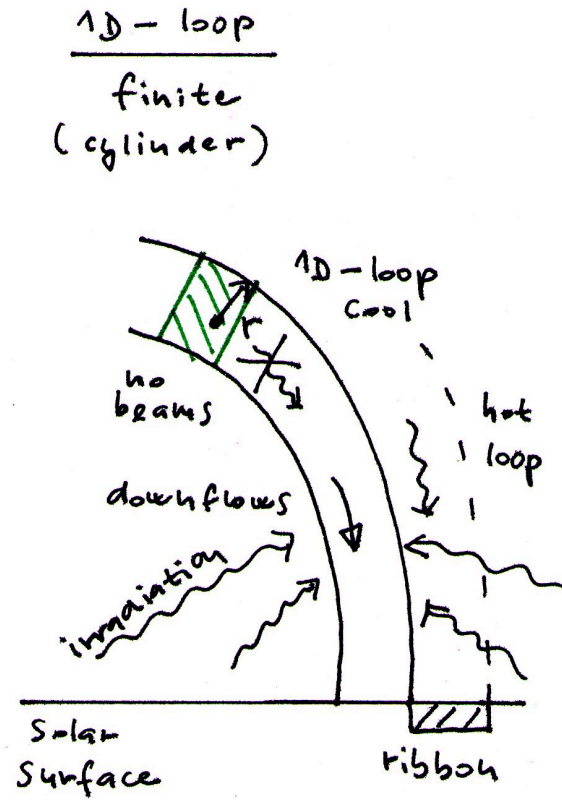 1D - loop
finite
(cylinder)
1D - loop
cool
r
no
beams
hot
loop
downflows
irradiation
Solar
Surface
ribbon